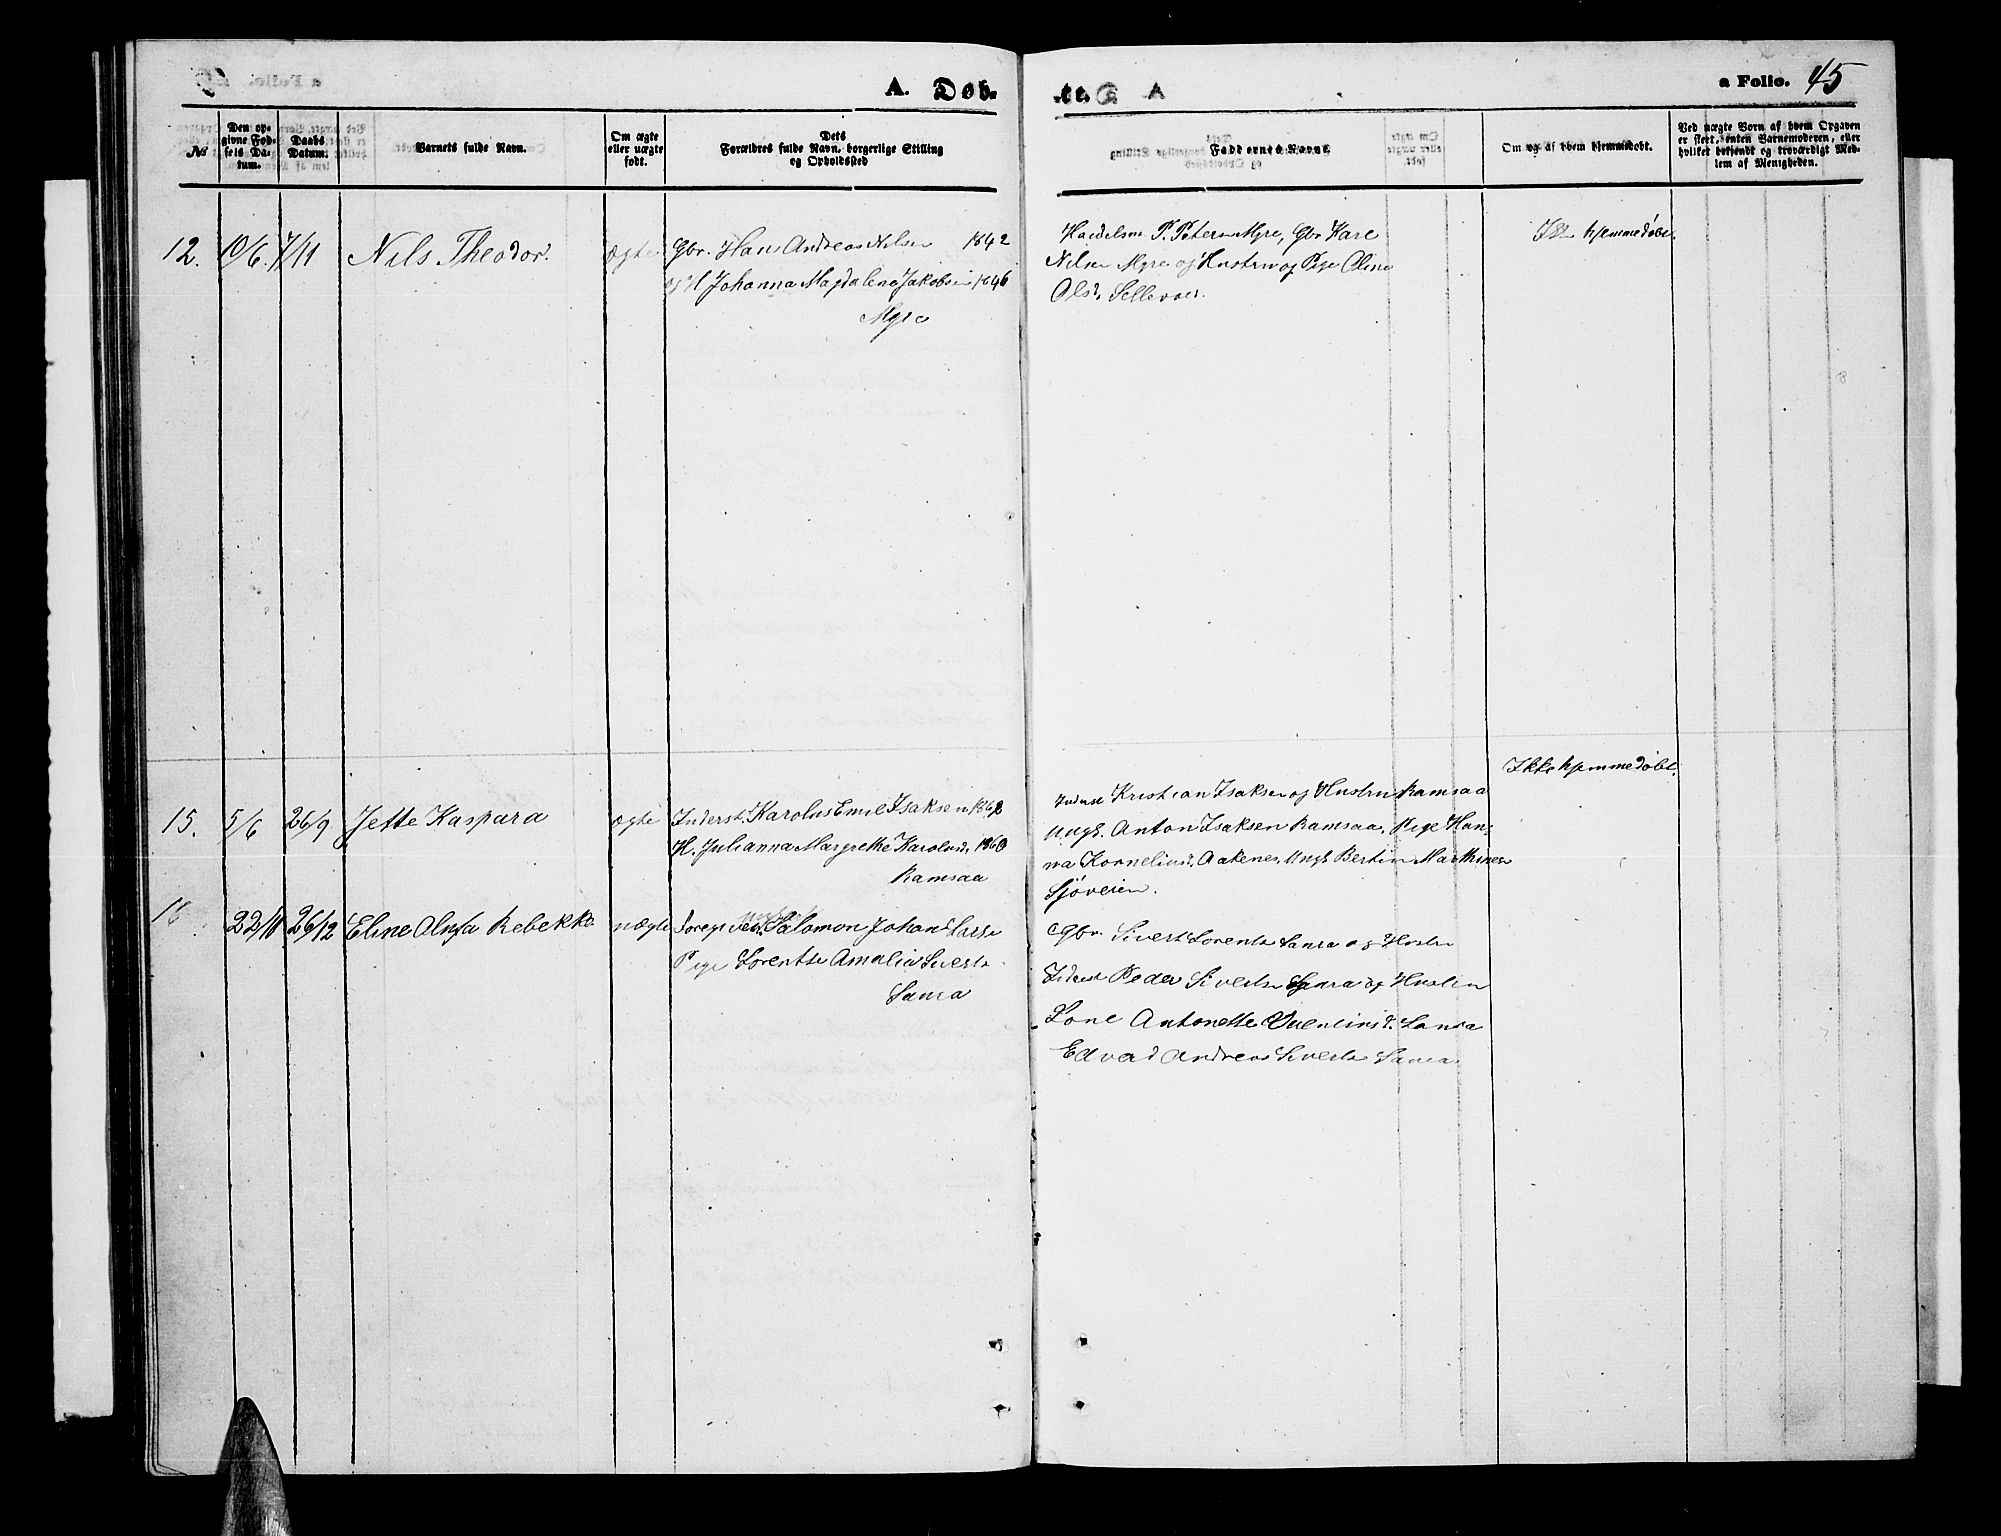 A. Dob-
te. A
a Folio. 45
No
Den op-
givne Fød-
sels Da-
tum.
Daabs
Datum.
Barnets fulde Navn.
Om ægte
eller uægte
født.
Dets
Forældres fulde Navn, borgerlige Stilling
og Opholdssted
Faddernes Navne
Om og af hvem hjemmedøbt.
Ved uægte Børn af hvem Opgaven
er skeet, enten Barnemoderen, eller
hvilket bekjendt og troværdigt Med-
lem af Menigheden.
12. 10/6. 7/11 Nils Theodor. ægte Gbr. Hans Andreas Nilsen 1842
og H Johanna Magdalena Jakobsd 1846
Myre
P. Petersen Myre, Gbr Kare
Nilsen Myre og Hustru og Pige Oline
Olsd.
hjemmedøbt.
Ikke hjemmedøbt.
15. 5/6 26/9 Jette Kaspara ægte Inderst. Karolus Emil Isaksen 1862
H. Julianna Margrethe Karolusd. 1860
Ramsaa
Inderst Kristian Isaksen og Hustru Ramsaa
Ungk. Anton Isaksen Ramsaa, Pige Han-
na Korneliusd. Aakenes, Ungk Bertin Marthinsen
Sjøveien.
22/11 26/12 Eline Olufa Rebekka uægte Ungk. Salomon Johan Larse
Pige Lorentse Amalia Siverts
Sansa
Gbr. Sivert Lorents Sansa og Hustru
Inderst Peder Sivertsen Sansa og Hustru
Lone Antonette Sansa
Edvard Andreas Siverts Sansa